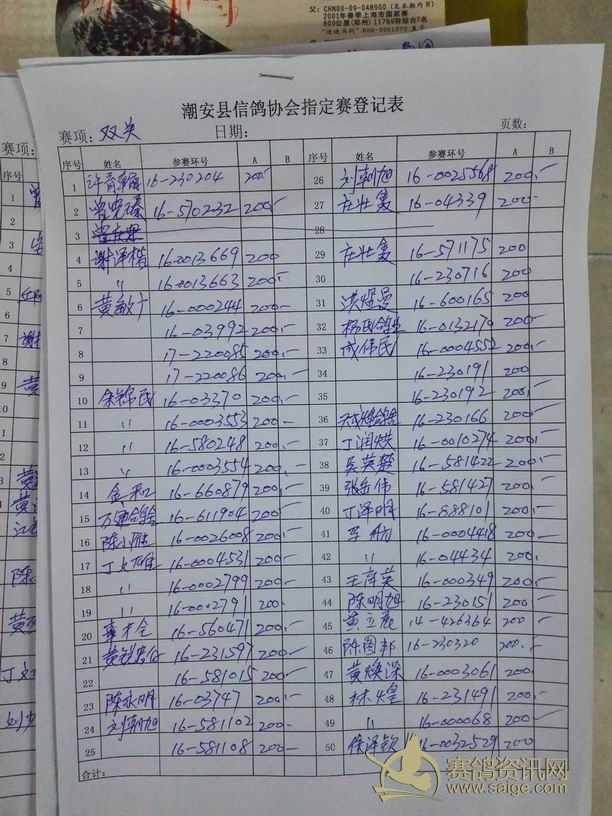 父: CHN00-09-048900 (见本期内页)
2001年春季上海市国家赛
800公里(郑州) 11769羽综合7名
潮安县信鸽协会指定赛登记表
赛项: 双关 日期: 页数:
序号 姓名 参赛环号 A B 序号 姓名 参赛环号 A B
1 16-230204 200.- 26 刘朝旭 16-0025568 200.-
2 16-570232 200.- 27 16-04339 200.-
3 28
4 谢泽楷 16-0013669 200 29 16-571175 200
5 〃 16-0013663 200.- 30 16-230716 200.-
6 黄敏广 16-000244 200.- 31 洪煜曼 16-600165 200
7 16-03992 200.- 32 16-0132179 200.-
8 17-220085 200.- 33 成伟民 16-0004552 200.-
9 17-220086 200.- 34 16-230191 200
10 余锦民 16-03370 200.- 35 16-230192 200.-
11 〃 16-0003553 200- 36 16-230166 200.-
12 〃 16-580248 200.- 37 丁润烘 16-0010274 200.-
13 〃 16-0003554 200.- 38 吴英楚 16-581422 200.-
14 金和 16-660879 200.- 39 张岳伟 16-581427 200.-
15 16-611904 200.- 40 丁泽明 16-888101 200.-
16 16-0026008 200.- 41 16-0004418 200.-
17 丁文雄 16-0004531 200- 42 〃 16-04434 200.
18 〃 16-0002799 200- 43 王序英 16-000349 200.-
19 〃 16-0002791 200. 44 陈明旭 16-230151 200.-
20 16-560471 200- 45 黄立晨 14-426364 200.-
21 16-231597 200- 46 陈图邦 16-230320 200.-
22 16-581015 200.- 47 黄焕深 16-0003061 200.
23 陈永明 16-03747 200.- 48 林煌 16-231491 200.-
24 刘朝旭 16-581102 200- 49 〃 16-000068 200.-
25 16-581108 200- 50 徐泽钦 16-0032529 200
合计:
赛鸽资讯网
www.saige.com